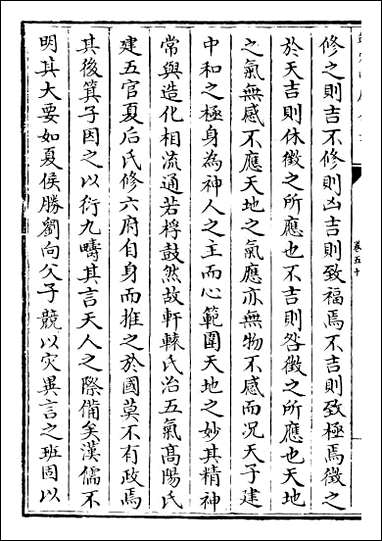 修之則吉不修則凶吉則致福焉不吉則致極焉徵之
於天吉則休徵之所應也不吉則咎徵之所應也天地
之氣無感不應天地之氣應亦無物不感而況天子建
中和之極身為神人之主而心範圍天地之妙其精神
常與造化相流通若桴鼓然故軒轅氏治五氣髙陽氏
建五官夏后氏修六府自身而推之於國莫不有政焉
其後箕子因之以衍九疇其言天人之際備矣漢儒不
明其大要如夏侯勝劉向父子競以災異言之班固以
卷五十